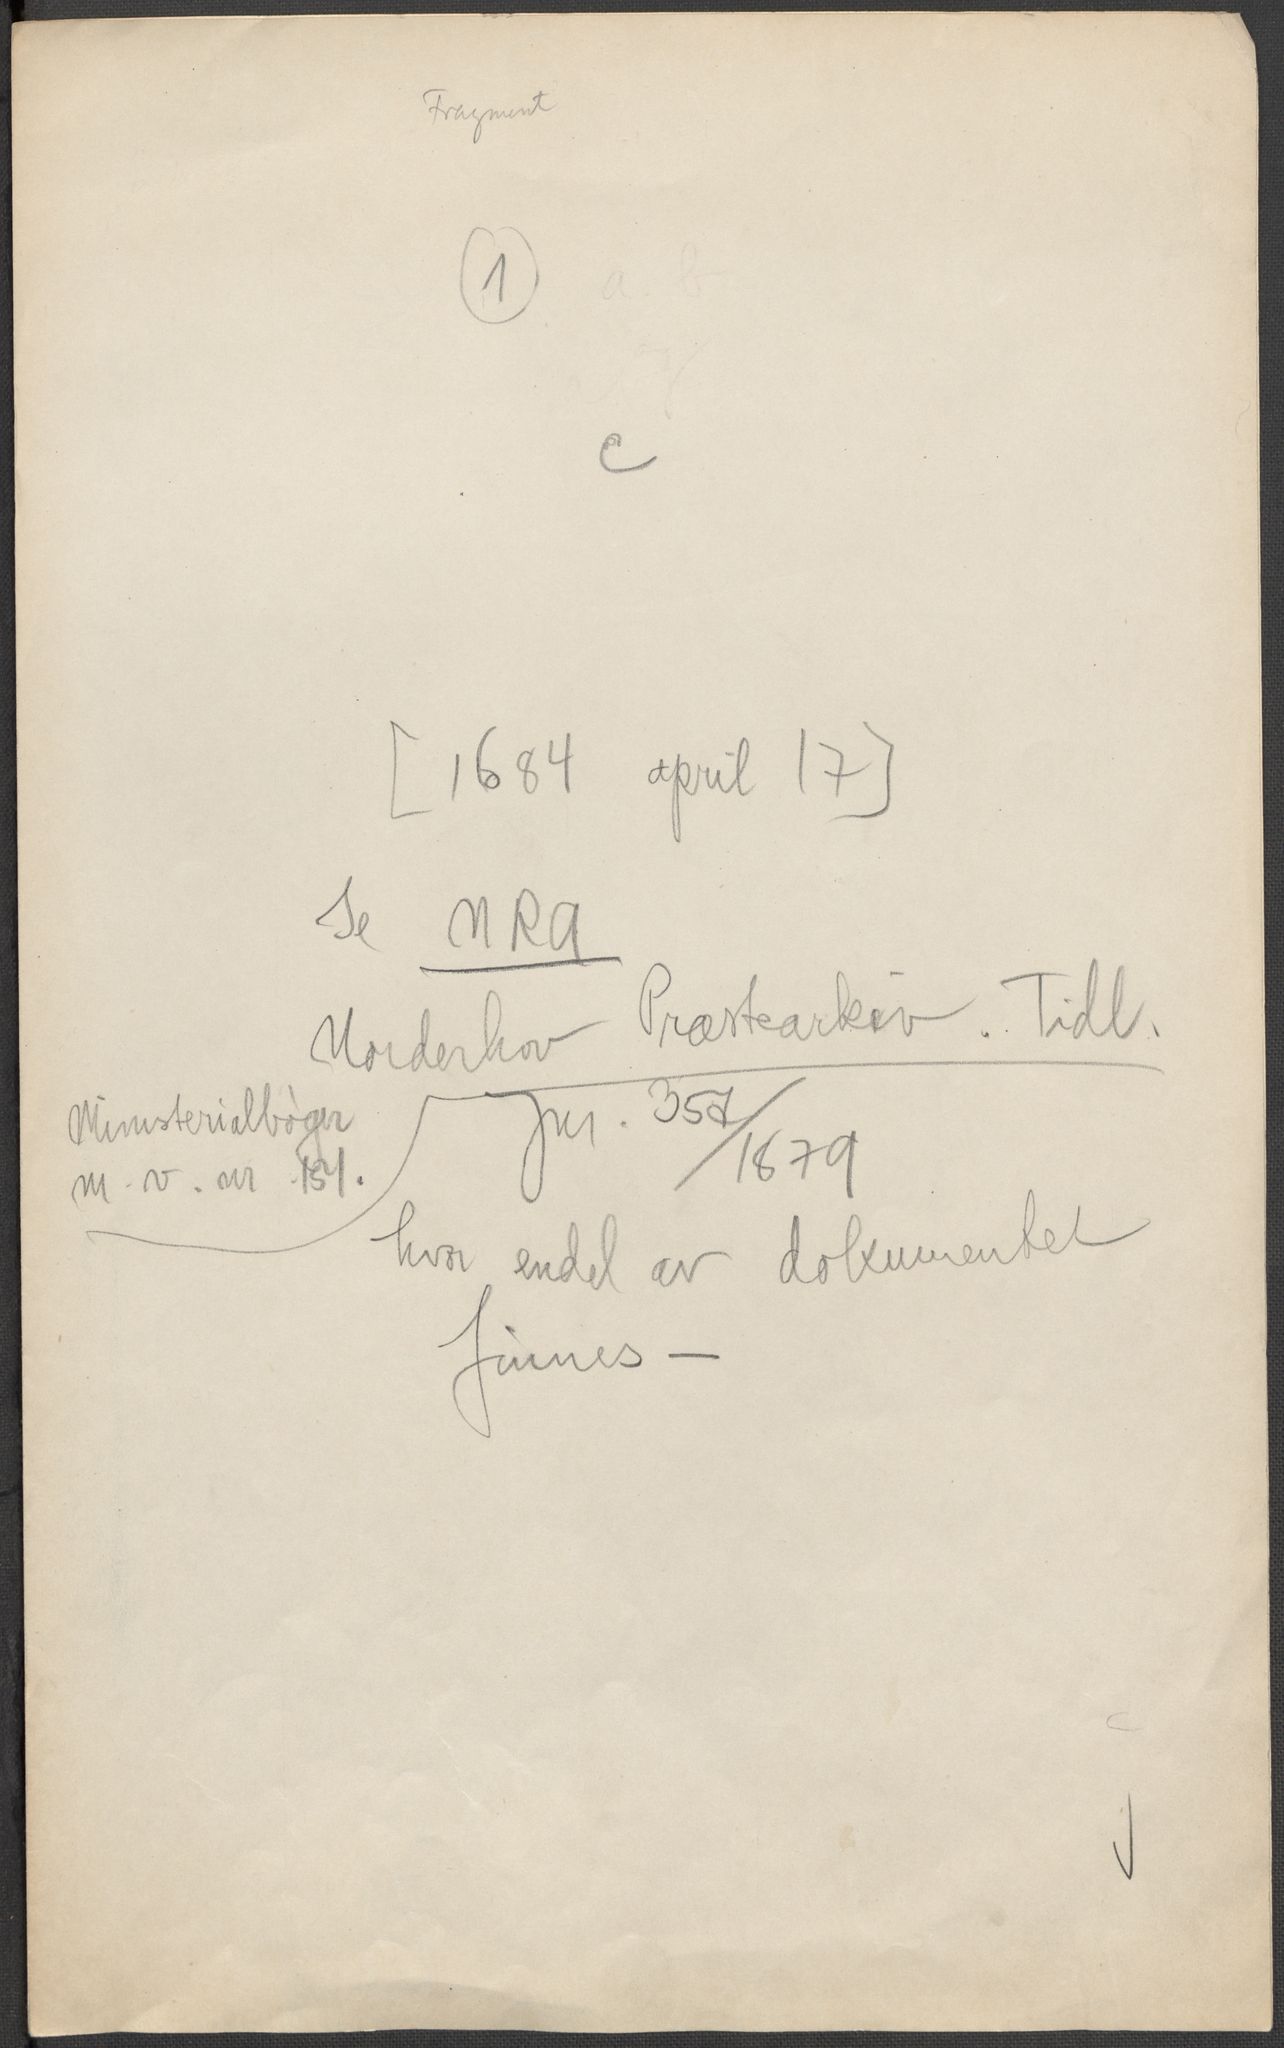 Fragment
1 a. b
c
[1684 april 17]
Se NRA
Norderhov Præstearkiv. Tidl.
Ministerialbøger
m. v. nr 151.
jnr. 357/1879
hvor endel av dokumentet
finnes —
c